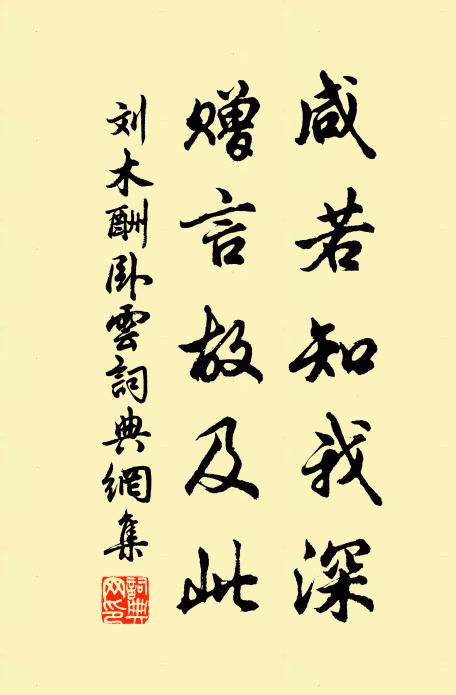 咸若知我深
赠言故及此
刘木酬卧雲詞典網集
詞典網印